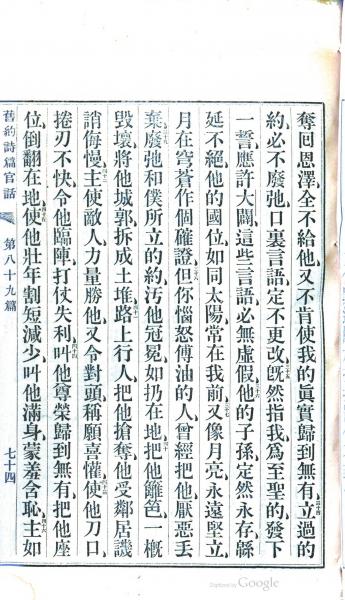 奪回恩澤全不給他又不肯使我的眞實歸到無有三十四立過的
約必不廢弛口裏言語定不更改三十五旣然指我爲至聖的發下
一誓應許大闢這些言語必無虛假三十六他的子孫定然永存緜
延不絕他的國位如同太陽常在我前三十七又像月亮永遠堅立
月在穹蒼作個確證三十八但你惱怒傅油的人曾經把他厭惡丟
棄三十九廢弛和僕所立的約汚他冠冕如扔在地四十把他籬笆一概
毀壞將他城郭拆成土堆四十一路上行人把他搶奪他受鄰居譏
誚侮慢四十二主使敵人力量勝他又令對頭稱願喜懽四十三使他刀口
捲刃不快令他臨陣打仗失利四十四叫他尊榮歸到無有把他座
位倒翻在地四十五使他壯年割短減少叫他滿身蒙羞含恥四十六主如
舊約詩篇官話 第八十九篇 七十四
Digitized by Google